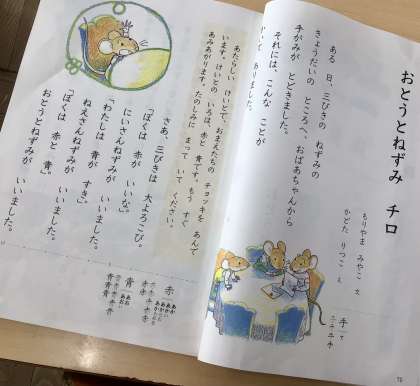 おとうとねずみ チロ
もりやま みやこ 文
かどた りつこ え
ある 日、三びきの ねずみの
きょうだいの ところへ、おばあちゃんから
手がみが とどきました。
それには、こんな ことが
かいて ありました。
手
て
あたらしい けいとで、おまえたちの チョッキを あんで
います。けいとの いろは、赤と 青です。もう すぐ
あみあがります。たのしみに まって いて ください。
さあ、三びきは 大よろこび。
「ぼくは 赤が いいな。」
にいさんねずみが いいました。
「わたしは 青が すき。」
ねえさんねずみが いいました。
「ぼくは 赤と 青。」
おとうとねずみが いいました。
赤
青